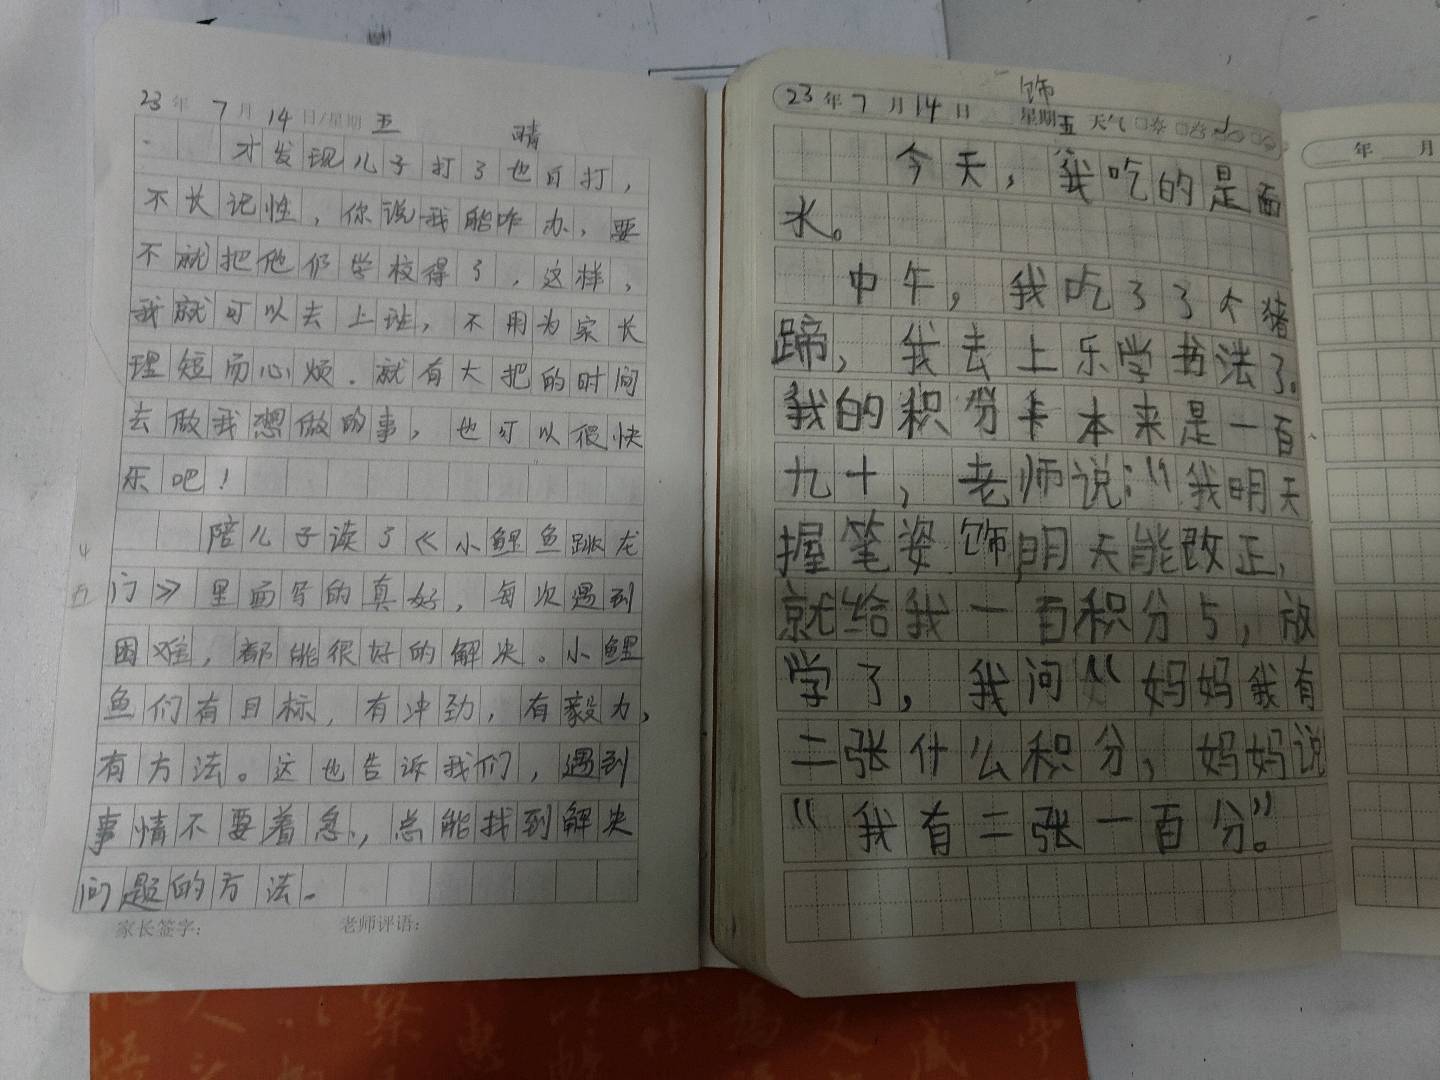 23年 7月 14日/星期五 晴
才发现儿子打了也白打,
不长记性,你说我能咋办,要
不就把他仍学校得了,这样,
我就可以去上班,不用为家长
理短而心烦.就有大把的时间
去做我想做的事,也可以很快
乐吧!
陪儿子读了《小鲤鱼跳龙
门》里面写的真好,每次遇到
困难,都能很好的解决。小鲤
鱼们有目标,有冲劲,有毅力,
有方法。这也告诉我们,遇到
事情不要着急,总能找到解决
问题的方法.
家长签字: 老师评语:
饰
23年 7月 14日 星期五 天气
今天,我吃的是面
水。
中午,我吃了了个猪
蹄,我去上乐学书法了。
我的积分卡本来是一百
九十,老师说:“我明天
握笔姿饰明天能改正,
就给我一百积分5,放
学了,我问“妈妈我有
二张什么积分,妈妈说
“我有二张一百分”。
年 月